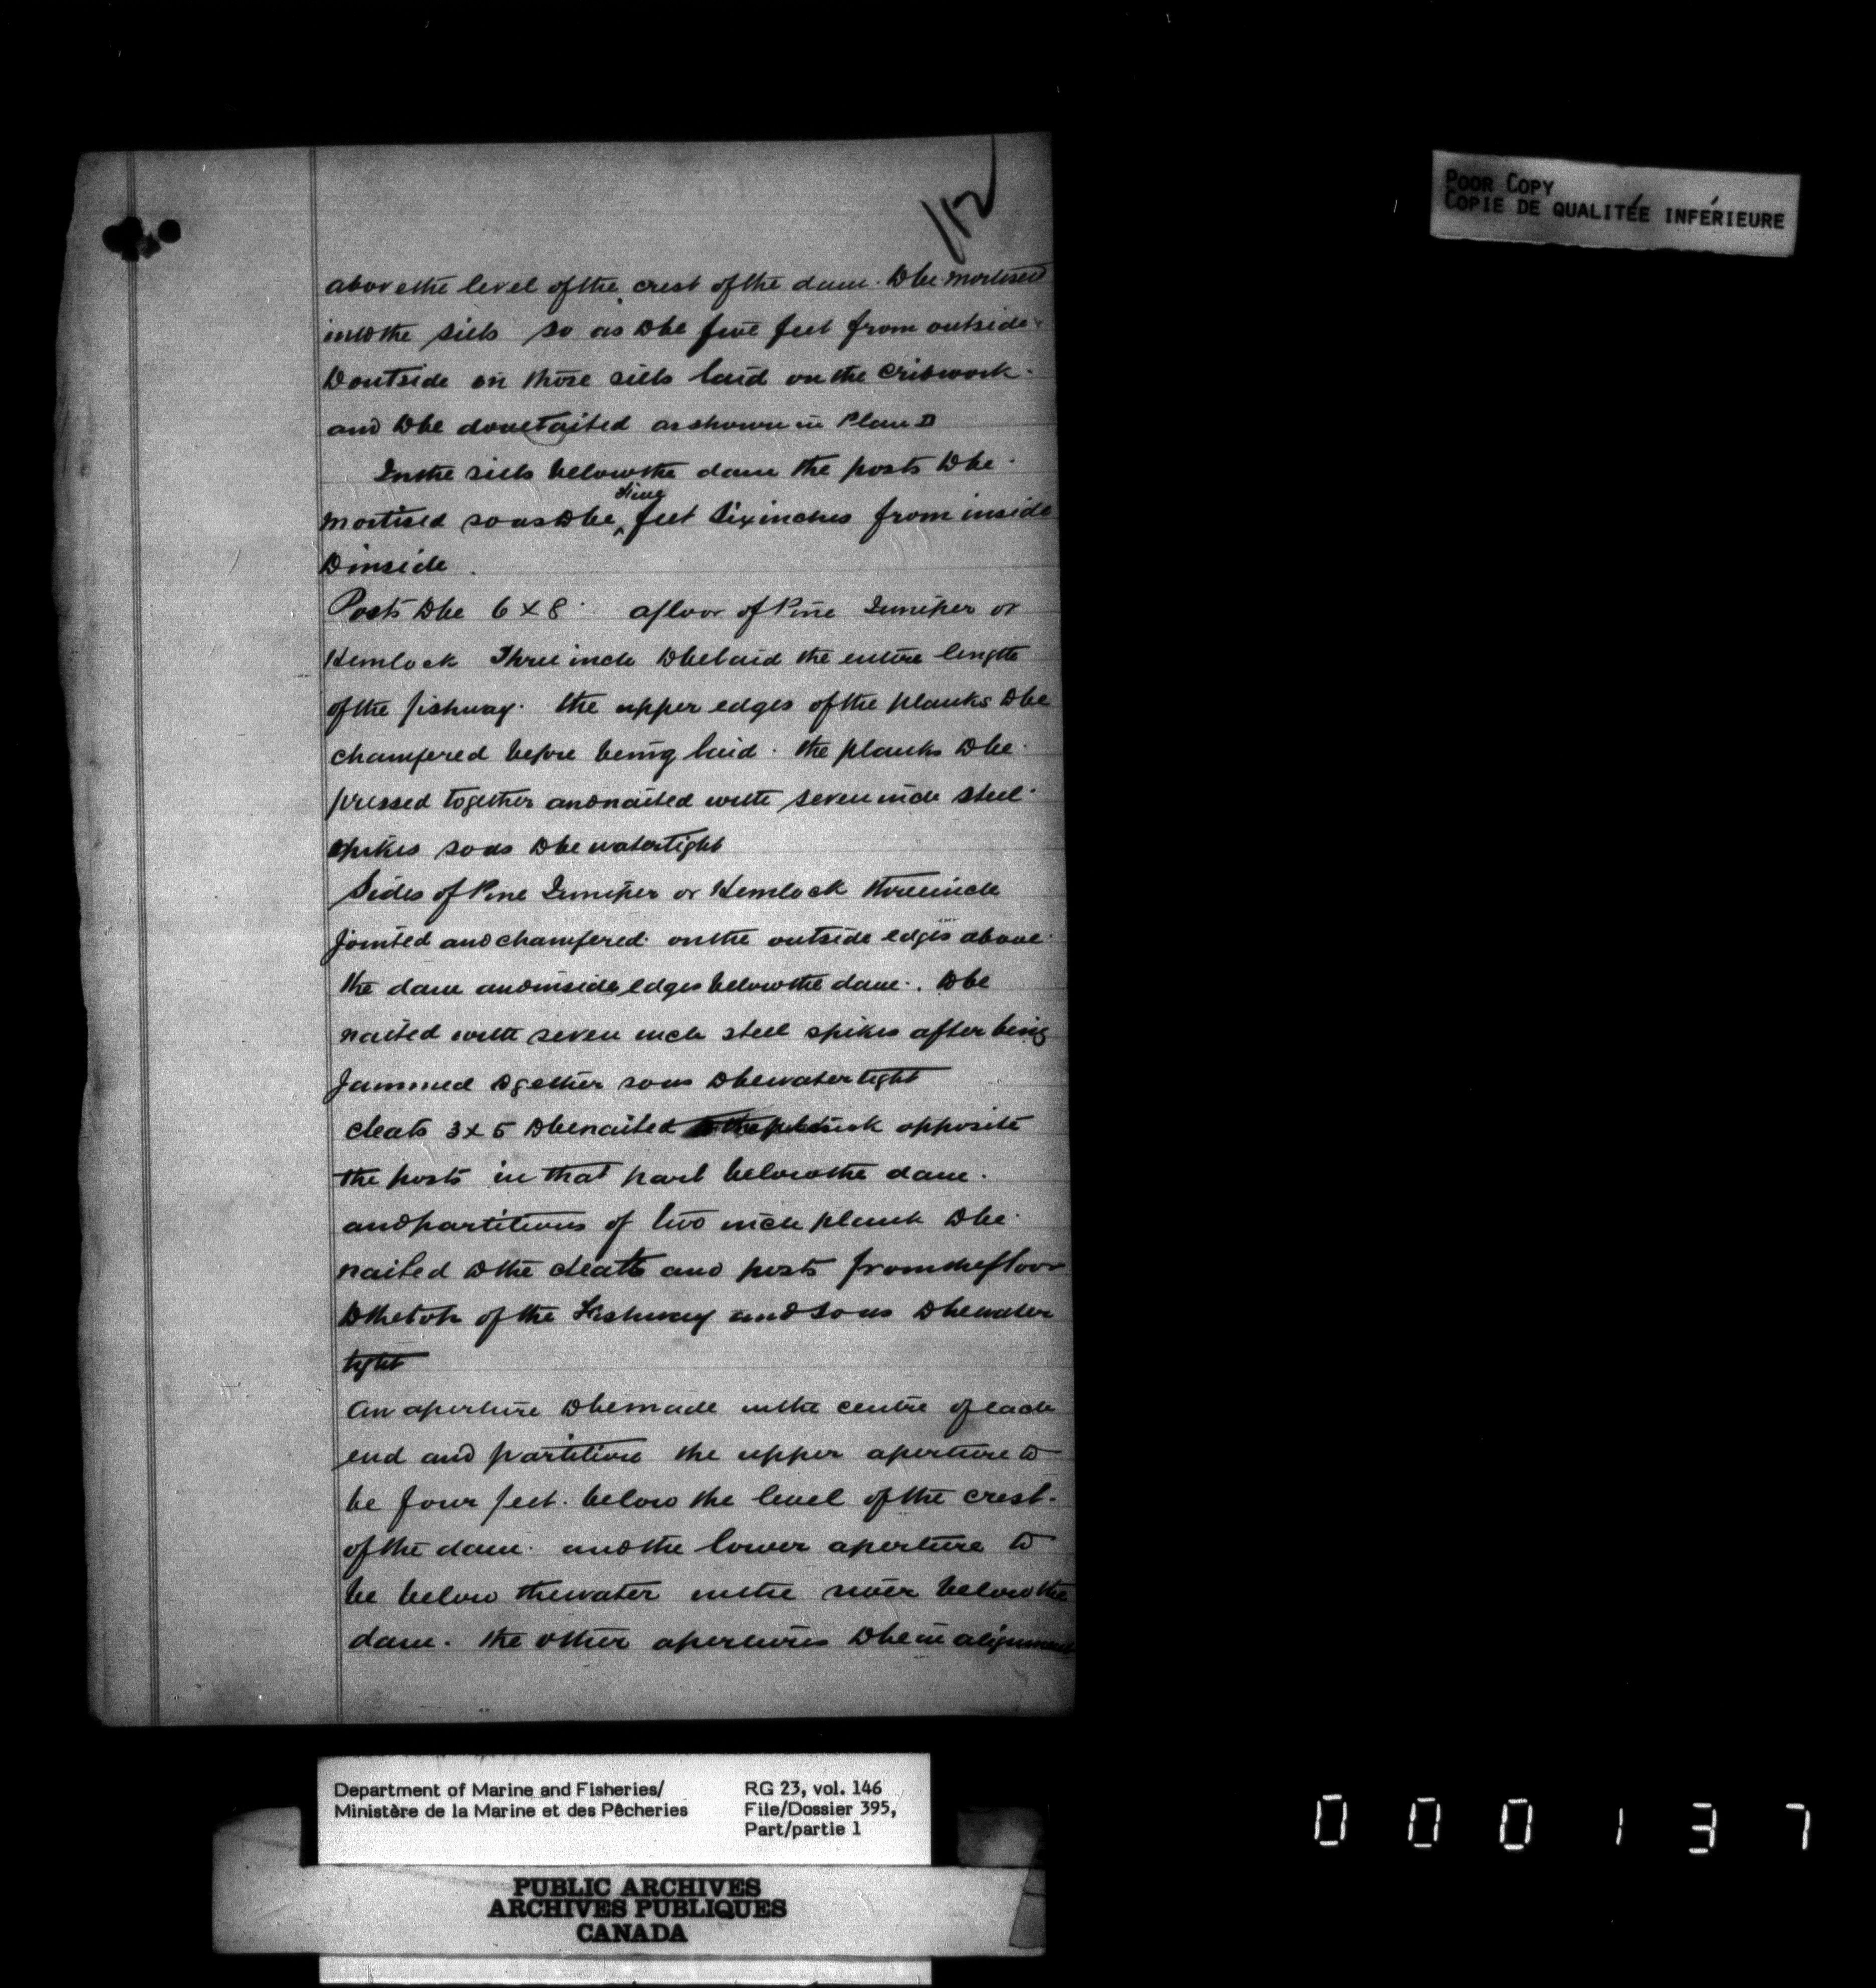 112
POOR COPY
COPIE DE QUALITÉE INFÉRIEURE
above the level of the crest of the dam. to be mortised
into the sills so as to be five feet from outside
to outside on those sills laid on the cribwork.
and to be dovetailed as shown in Plan D
In the sills below the dam the posts to be
mortised so as to be five feet six inches from inside
to inside.
Posts to be 6 x 8. a floor of Pine Juniper or
Hemlock Three inch to be laid the entire length
of the fishway. the upper edges of the planks to be
chamfered before being laid. the planks to be
pressed together and nailed with seven inch steel
spikes so as to be watertight
Sides of Pine Juniper or Hemlock three inch
jointed and chamfered on the outside edges above
the dam and inside edges below the dam. to be
nailed with seven inch steel spikes after being
jammed together so as to be water tight
cleats 3 x 5 to be nailed opposite
the posts in that part below the dam.
and partitions of two inch plank to be
nailed to the cleats and posts from the floor
to the top of the Fishway and so as to be water
tight
An aperture to be made in the centre of each
end and partition the upper aperture to
be four feet. below the level of the crest.
of the dam. and the lower aperture to
be below the water in the river below the
dam. the other apertures to be in alignment
Department of Marine and Fisheries/
Ministère de la Marine et des Pêcheries
RG 23, vol. 146
File/Dossier 395,
Part/partie 1
PUBLIC ARCHIVES
ARCHIVES PUBLIQUES
CANADA
000137